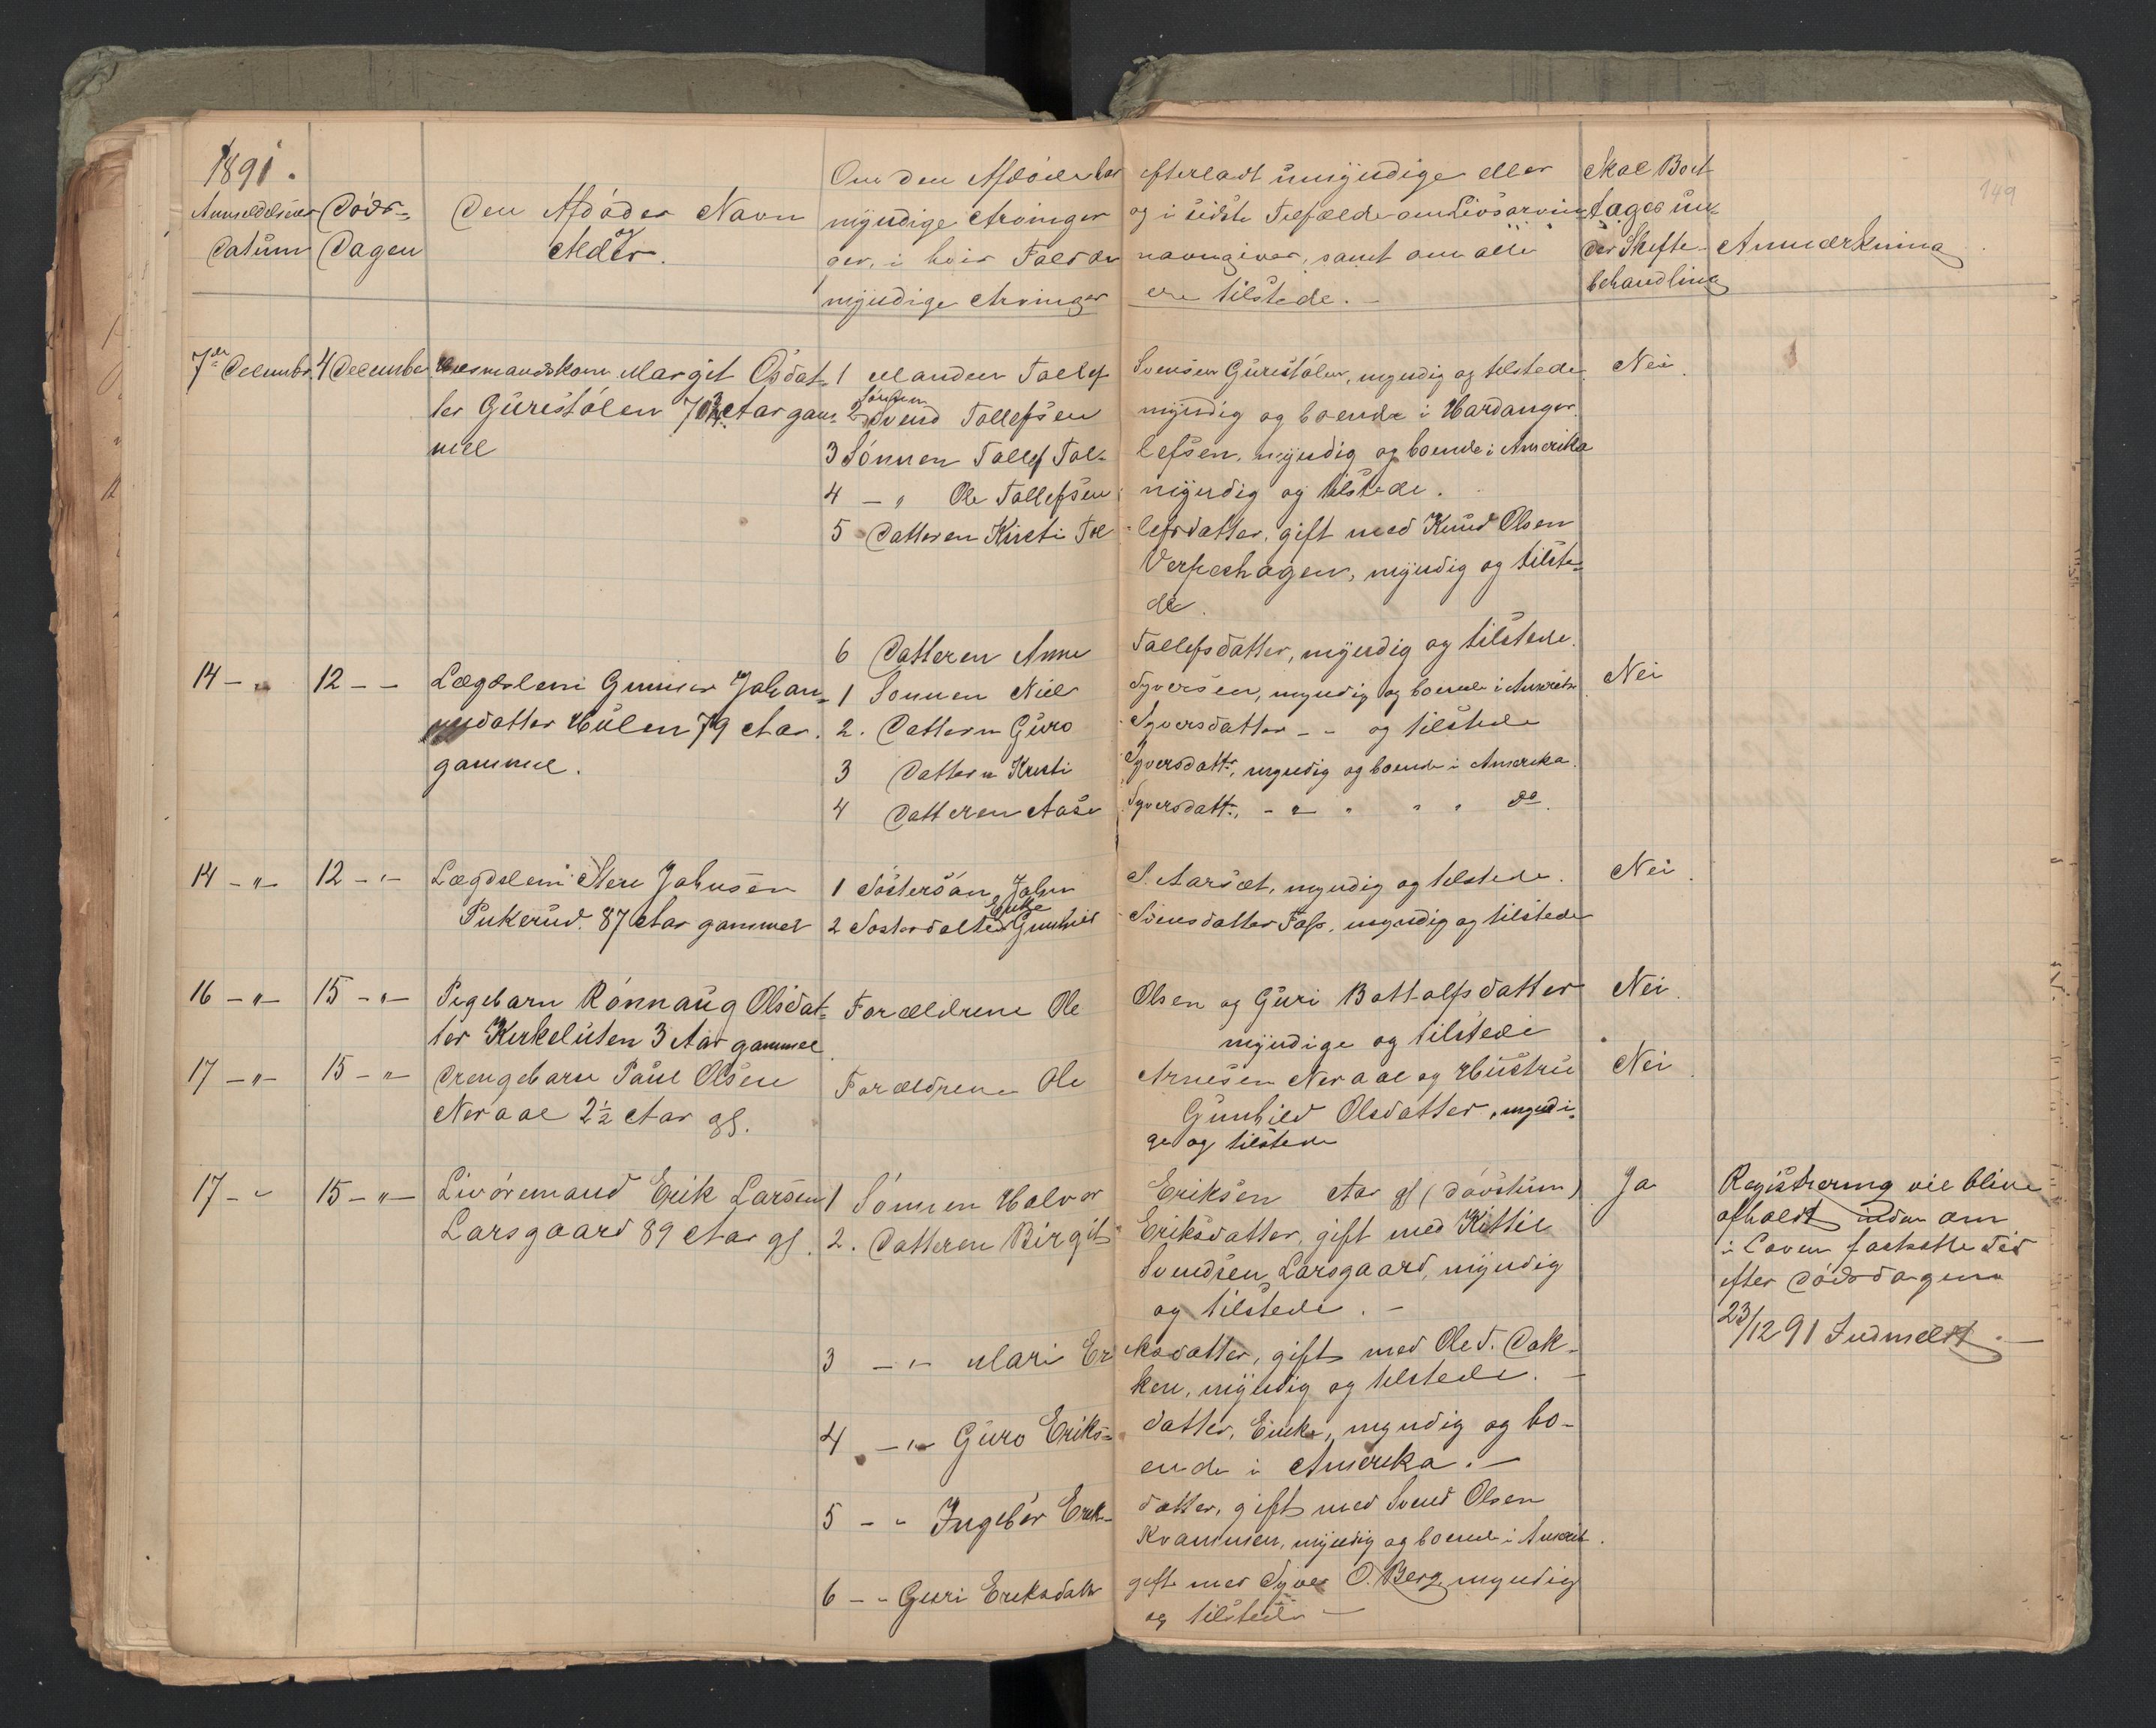 149
1891.
Anmeldelsens Døds- Den Afdødes Navn
Datum Dagen Alder.
Om den Afdøde har efterladt umyndige eller
myndige Arvinger og i sidste Tilfælde om Livsarvin
ger, i hvis Fald de navngives, samt om alle
myndige Arvinger ere tilstede. -
Skal Boet
tages un-
der Skifte-
behandling
Anmærkning
7de December 4 December Husmandskone Margit Osdat- 1 Manden Tollef Svensen Guristølen, myndig og tilstede. Nei.
ter Guristølen 70 Aar gam- 2 Sønnen Svend Tollefsen myndig og boende i Hardanger.
mel 3 Sønnen Tollef Tol- lefsen, myndig og boende i Amerika
4 - " Ole Tollefsen myndig og tilstede.
5 Datteren Kirsti Tol- lefsdatter, gift med Knud Olsen
Verpeshagen, myndig og tilste-
de.
6 Datteren Anne Tollefsdatter, myndig og tilstede.
14 - " 12 - - Lægdslem Gunner Johan- 1 Sønnen Niels Syversen, myndig og boende i Amerika Nei
nesdatter Hulen 79 Aar 2. Datteren Guro Syversdatter - - og tilstede
gammel. 3 Datteren Kirsti Syversdatt:, myndig og boende i Amerika.
4 Datteren Aase Syversdatt:, - " " " " do.
14 - " - 12 - " - Lægdslem Stere Johnsen 1 Søstersøn John S. Aarsæt, myndig og tilstede. Nei.
Pukerud. 87 Aar gammel 2 Søsterdatter Enke Gunhild Svensdatter Foss, myndig og tilstede
16 - " - 15 - " - Pigebarn Rønnaug Olsdat- Forældrene Ole Olsen og Guri Bottolfsdatter Nei.
ter Kirkeluten 3 Aar gammel. myndige og tilstede
17 - " - 15 - " Drengebarn Paul Olsen Forældrene Ole Arnesen Neraal og Hustru Nei
Neraal 2½ Aar gl. Gunhild Olsdatter, myndi-
ge og tilstede
17 - " 15 - " - Livøremand Erik Larsen 1 Sønnen Halvor Eriksen Aar gl (døvstum) Ja
Larsgaard 89 Aar gl. 2. Datteren Birgit Eriksdatter, gift med Kittil
Svendsen Larsgaard, myndig
og tilstede. -
3 - " - Mari Er iksdatter, gift med Ole D. Dok-
ken, myndig og tilstede. -
4 - " - Guro Eriks- datter, Enke, myndig og bo-
ende i Amerika. -
5 - " Ingebor Erik- datter, gift med Svend Olsen
Kvammen, myndig og boende i Amerik.
6 - " Guri Eriksdatter gift med Syver O. Berg myndig
og tilstede -
Registrering vil blive
afholdt inden om
i Loven fastsatte Tid
efter Dødsdagen
23/12 91 Indmeldt. -